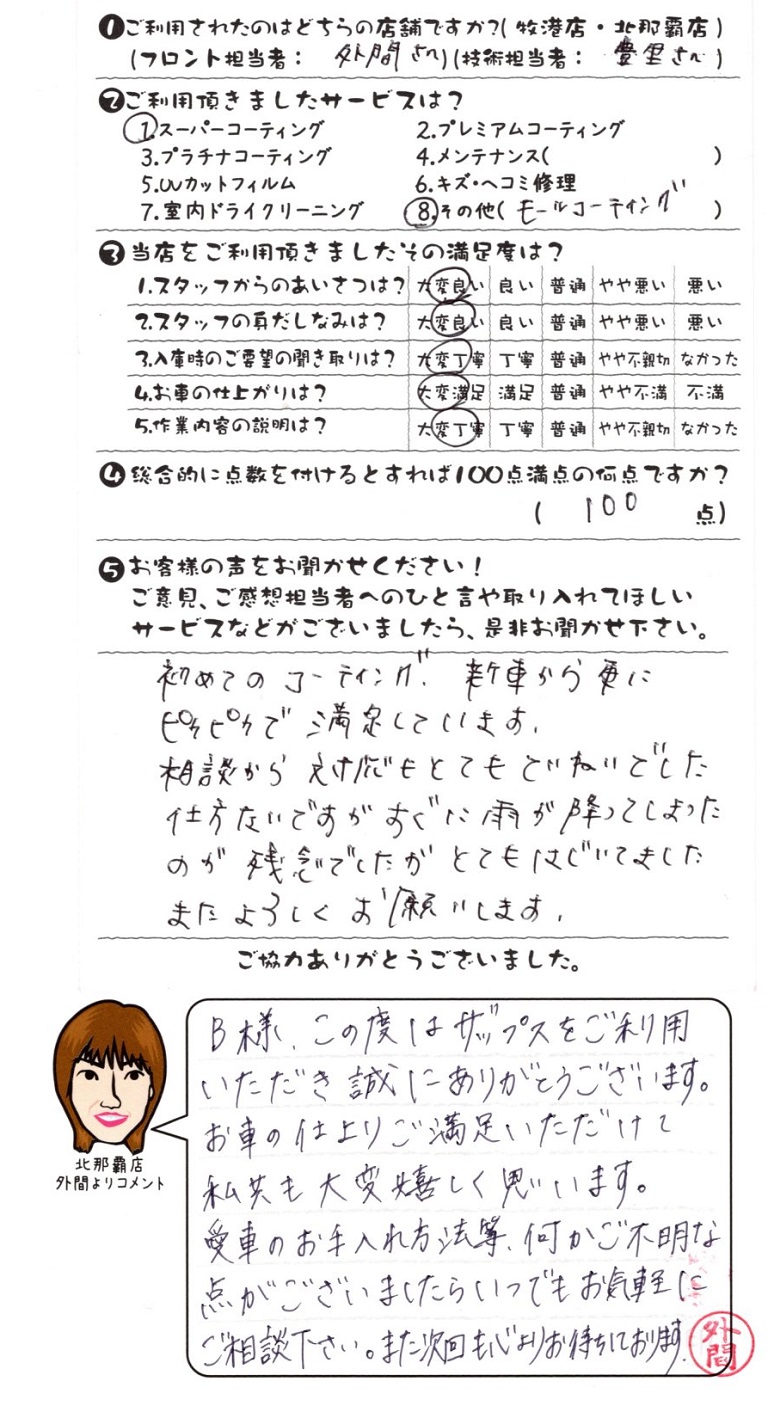 ❶ご利用されたのはどちらの店舗ですか?(牧港店・北那覇店)
(フロント担当者: 外間さん)(技術担当者: 豊里さん)
❷ご利用頂きましたサービスは?
1.スーパーコーティング 2.プレミアムコーティング
3.プラチナコーティング 4.メンテナンス( )
5.UVカットフィルム 6.キズ・ヘコミ修理
7.室内ドライクリーニング 8.その他(モールコーティング)
❸当店をご利用頂きましたその満足度は?
1.スタッフからのあいさつは? 大変良い 良い 普通 やや悪い 悪い
2.スタッフの身だしなみは? 大変良い 良い 普通 やや悪い 悪い
3.入庫時のご要望の聞き取りは? 大変丁寧 丁寧 普通 やや不親切 なかった
4.お車の仕上がりは? 大変満足 満足 普通 やや不満 不満
5.作業内容の説明は? 大変丁寧 丁寧 普通 やや不親切 なかった
❹総合的に点数を付けるとすれば100点満点の何点ですか?
( 100 点)
❺お客様の声をお聞かせください!
ご意見、ご感想担当者へのひと言や取り入れてほしい
サービスなどがございましたら、是非お聞かせ下さい。
初めてのコーティング、新車から更に
ピカピカで満足しています。
相談から対応もとてもていねいでした
仕方ないですがすぐに雨が降ってしまった
のが残念でしたがとてもはじいてました
またよろしくお願いします。
ご協力ありがとうございました。
B様、この度はザップスをご利用
いただき誠にありがとうございます。
お車の仕上りご満足いただけて
私共も大変嬉しく思います。
愛車のお手入れ方法等、何かご不明な
点がございましたらいつでもお気軽に
ご相談下さい。また次回も心よりお待ちしております。
外間
北那覇店
外間よりコメント